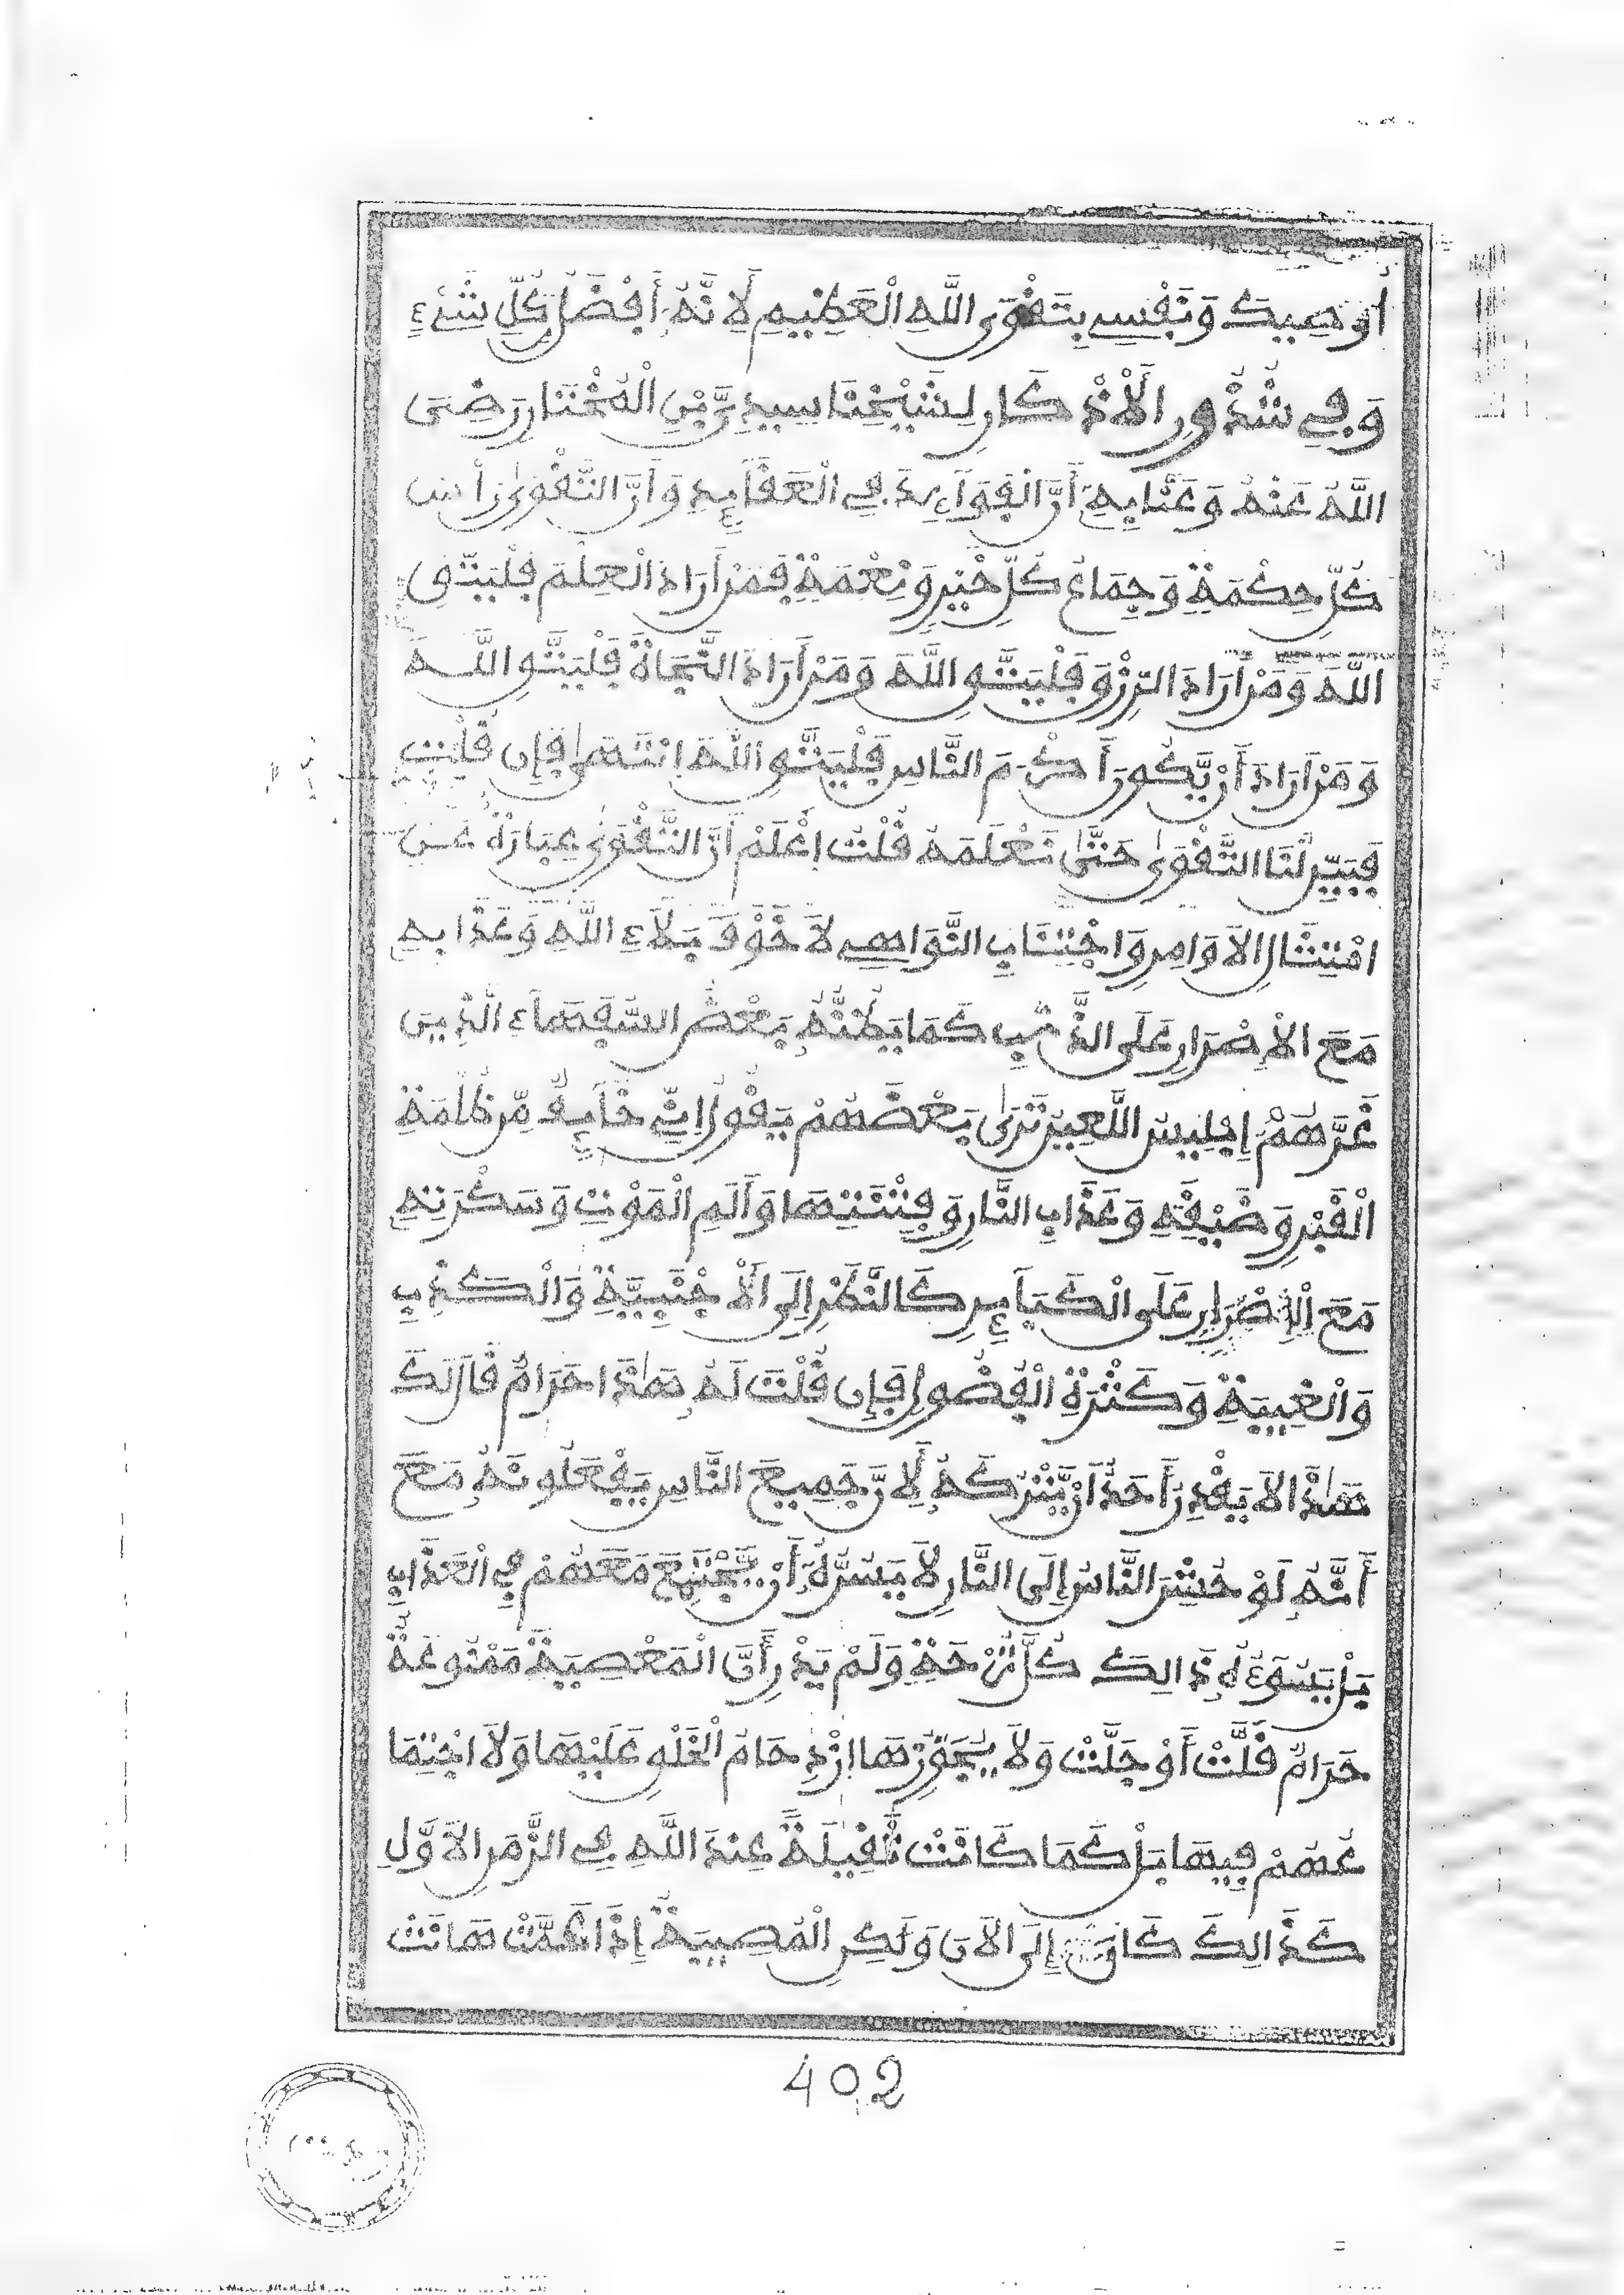 أُوصِيكَ وَنَفْسِي بِتَقْوَى اللَّهِ الْعَظِيمِ لِأَنَّهُ أَفْضَلُ كُلِّ شَيْءٍ
وَفِي شُذُورِ الْأَذْكَارِ لِشَيْخِنَا سِيدِي الْمُخْتَارِ رَضِيَ
اللَّهُ عَنْهُ وَعَنَّا بِهِ أَنَّ الْفَوَائِدَ فِي الْعَقَائِدِ وَأَنَّ التَّقْوَى رَأْسُ
كُلِّ حِكْمَةٍ وَجِمَاعُ كُلِّ خَيْرٍ وَنِعْمَةٍ فَمَنْ أَرَادَ الْعِلْمَ فَلْيَتَّقِ
اللَّهَ وَمَنْ أَرَادَ الرِّزْقَ فَلْيَتَّقِ اللَّهَ وَمَنْ أَرَادَ النَّجَاةَ فَلْيَتَّقِ اللَّهَ
وَمَنْ أَرَادَ أَنْ يَّكُونَ أَكْرَمَ النَّاسِ فَلْيَتَّقِ اللَّهَ انْتَهَى فَإِن قُلْتَ
فَبَيِّن لَّنَا التَّقْوَى حَتَّى نَعْلَمَهُ قُلْتُ اِعْلَمْ أَنَّ التَّقْوَى عِبَارَةٌ عَنِ
امْتِثَالِ الْأَوَامِرِ وَاجْتِنَابِ النَّوَاهِي لَا خَوْفَ بَلَاءِ اللَّهِ وَعَذَابِهِ
مَعَ الْإِصْرَارِ عَلَى الذَّنْبِ كَمَا يَظُنُّهُ بَعْضُ السُّفَهَاءِ الَّذِينَ
غَرَّهُمْ إِبْلِيسُ اللَّعِينُ تَرَى بَعْضَهُمْ يَقُولُ إِنِّي خَائِفٌ مِّن ظُلْمَةِ
الْقَبْرِ وَضَيْقَتِهِ وَعَذَابِ النَّارِ وَفِتْنَتِهَا وَأَلَمِ الْمَوْتِ وَسَكْرَتِهِ
مَعَ الْإِصْرَارِ عَلَى الْكَبَائِرِ كَالنَّظَرِ إِلَى الْأَجْنَبِيَّةِ وَالْكَذِبِ
وَالْغِيبَةِ وَكَثْرَةِ الْفُضُولِ فَإِن قُلْتَ لَهُ هَذَا حَرَامٌ قَالَ لَكَ
هَذَا لَا يَقْدِرُ أَحَدٌ أَنْ يَّتْرُكَهُ لِأَنَّ جَمِيعَ النَّاسِ يَفْعَلُونَهُ مَعَ
أَنَّهُ لَوْ حُشِرَ النَّاسُ إِلَى النَّارِ لَا يَسُرُّهُ أَنْ يَّجْتَمِعَ مَعَهُمْ فِي الْعَذَابِ
بَلْ يَسُوءُهُ ذَالِكَ كُلَّ تَرْحَةٍ وَلَمْ يَدْرِ أَنَّ الْمَعْصِيَةَ مَمْنُوعَةٌ
حَرَامٌ قَلَّتْ أَوْ جَلَّتْ وَلَا يُجَوِّزُهَا ازْدِحَامُ الْخَلْقِ عَلَيْهَا وَلَا اجْتِمَا
عُهُمْ فِيهَا بَلْ كَمَا كَانَتْ ثَقِيلَةً عِندَ اللَّهِ فِي الزَّمَنِ الْأَوَّلِ
كَذَالِكَ كَانَتْ إِلَى الْآنَ وَلَكِنِ الْمُصِيبَةُ إِذَا عَمَّتْ هَانَتْ
402